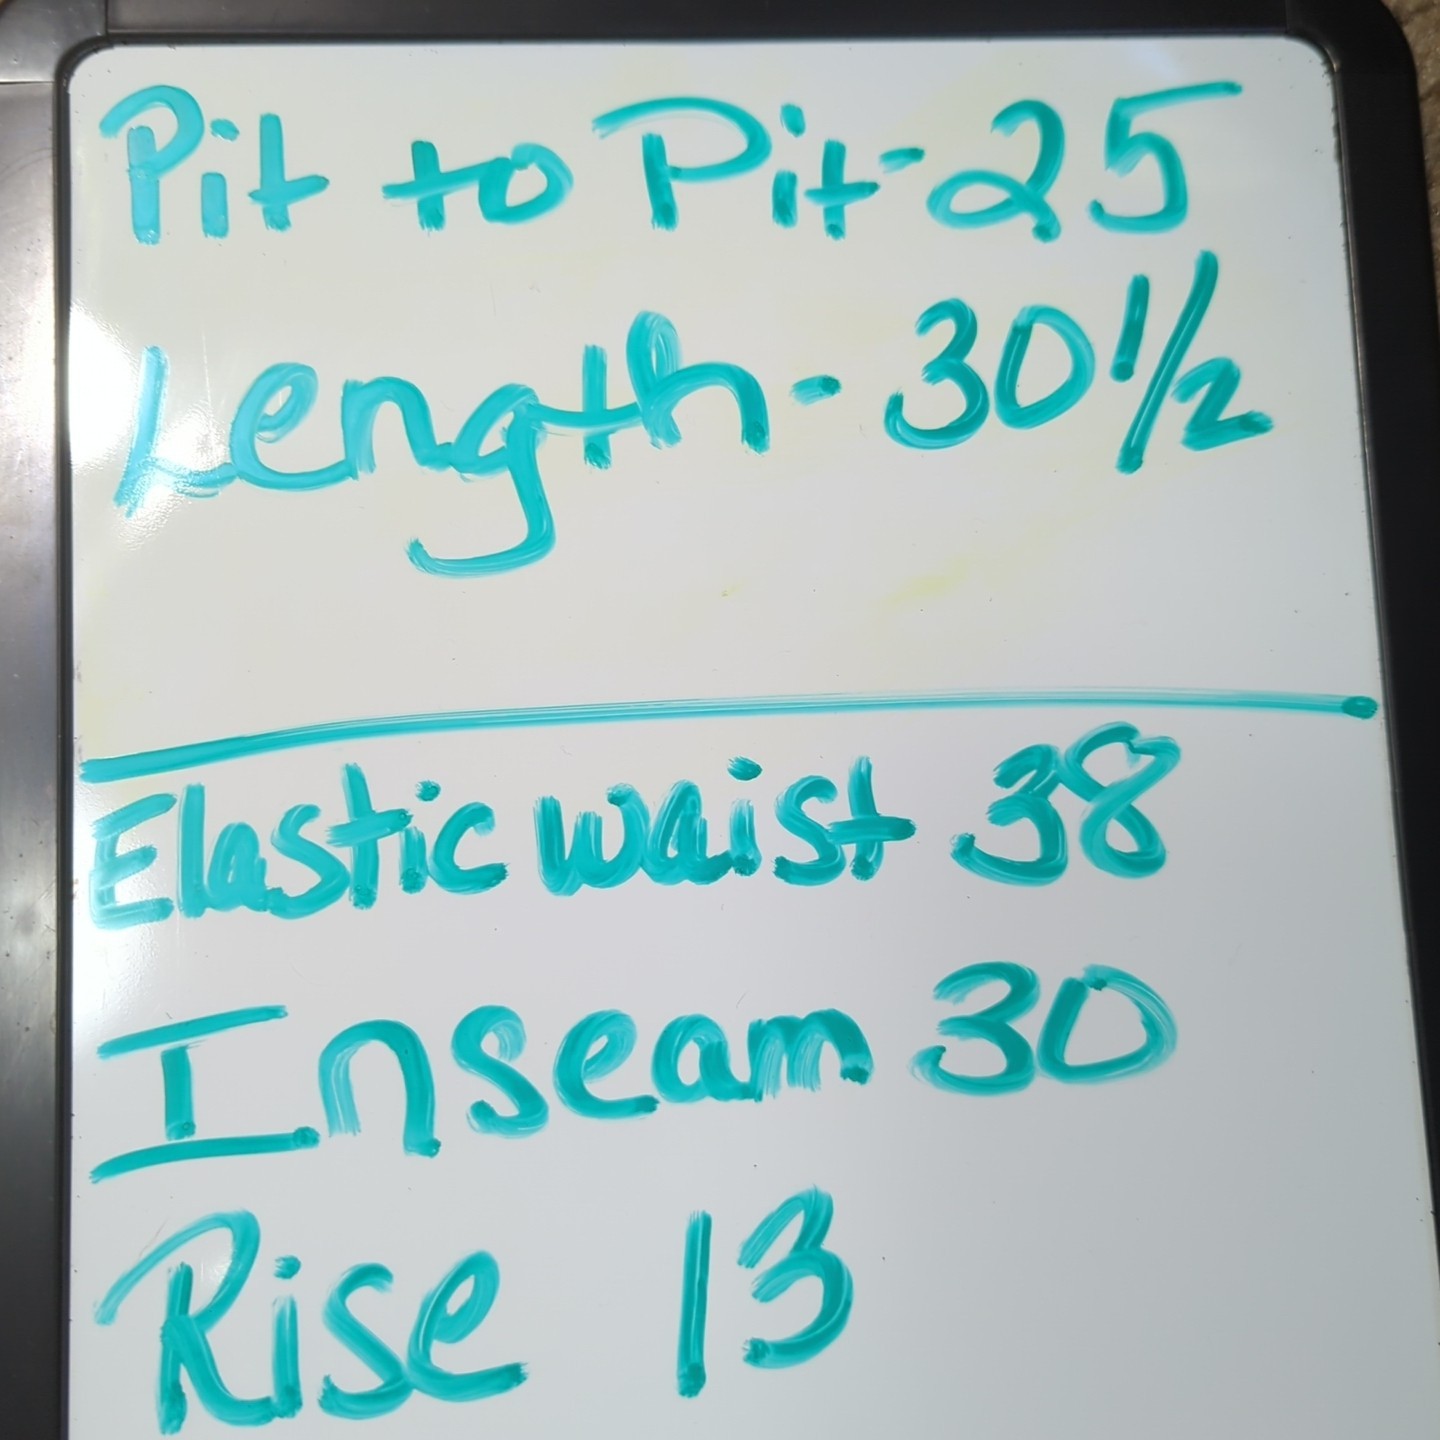 Pit to Pit - 25
Length - 30 1/2
Elastic waist 38
Inseam 30
Rise 13